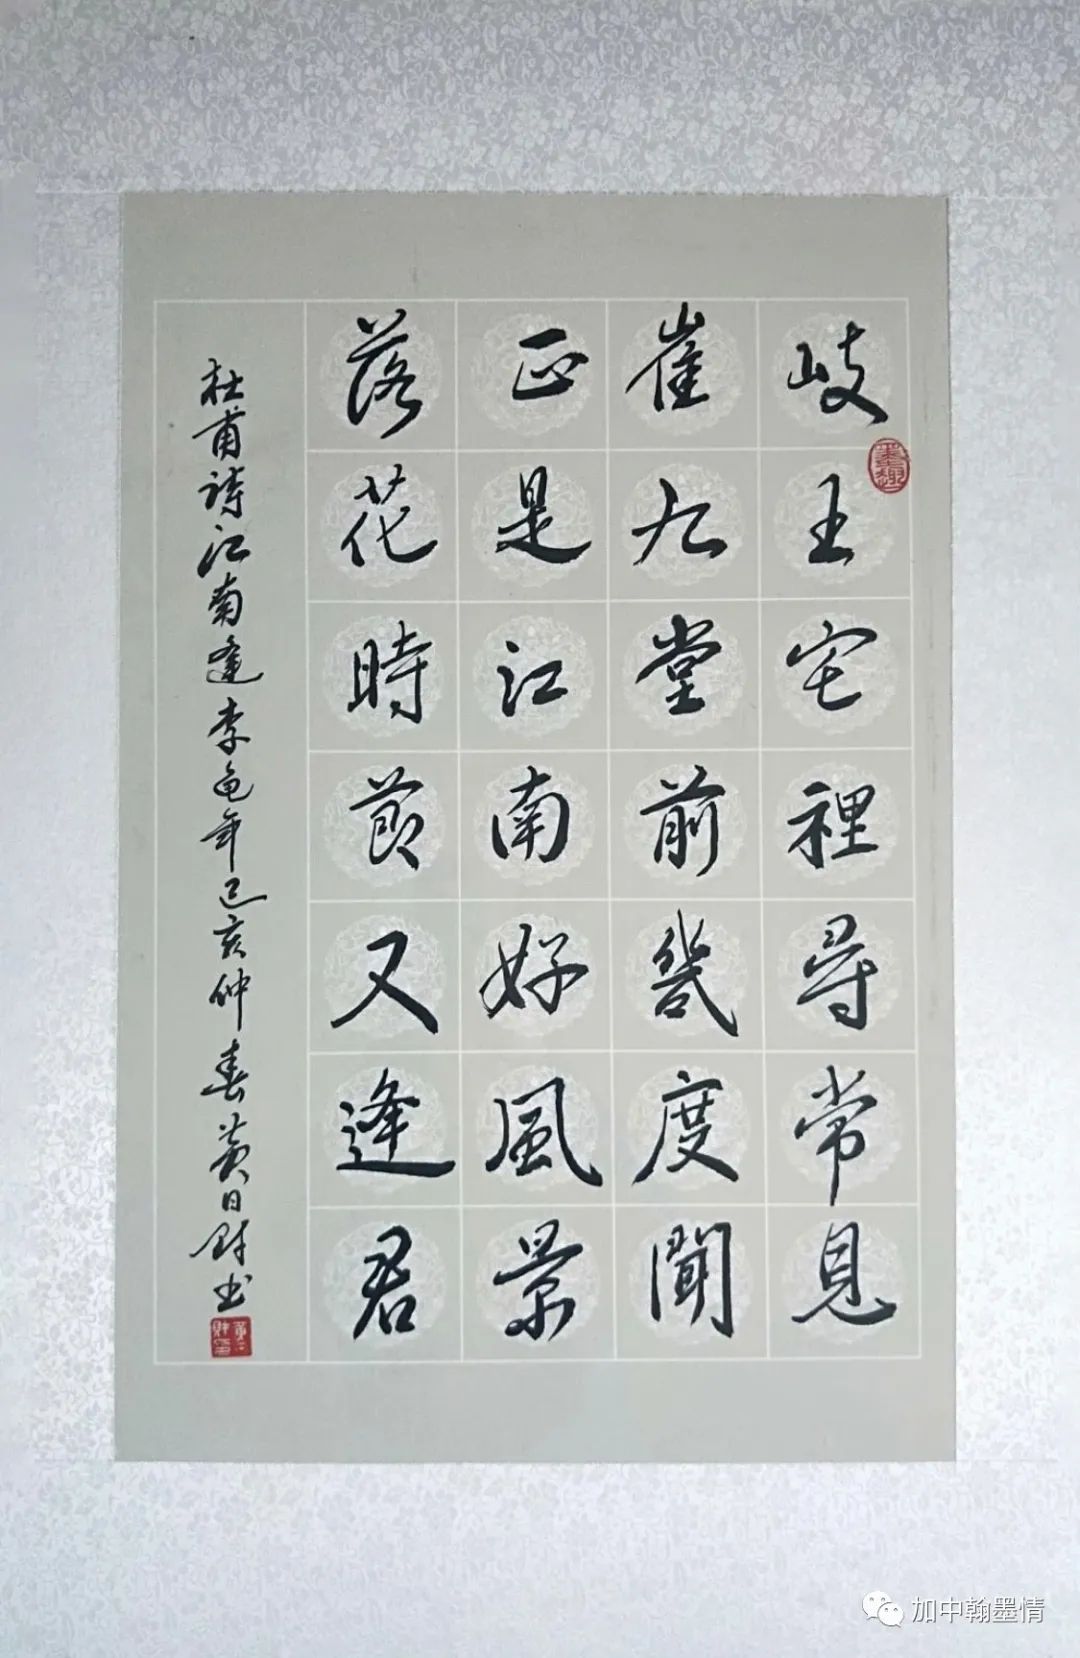 岐王宅裡尋常見
崔九堂前幾度聞
正是江南好風景
落花時節又逢君
杜甫诗江南逢李龟年己亥仲春黄日财书
墨趣
加中翰墨情